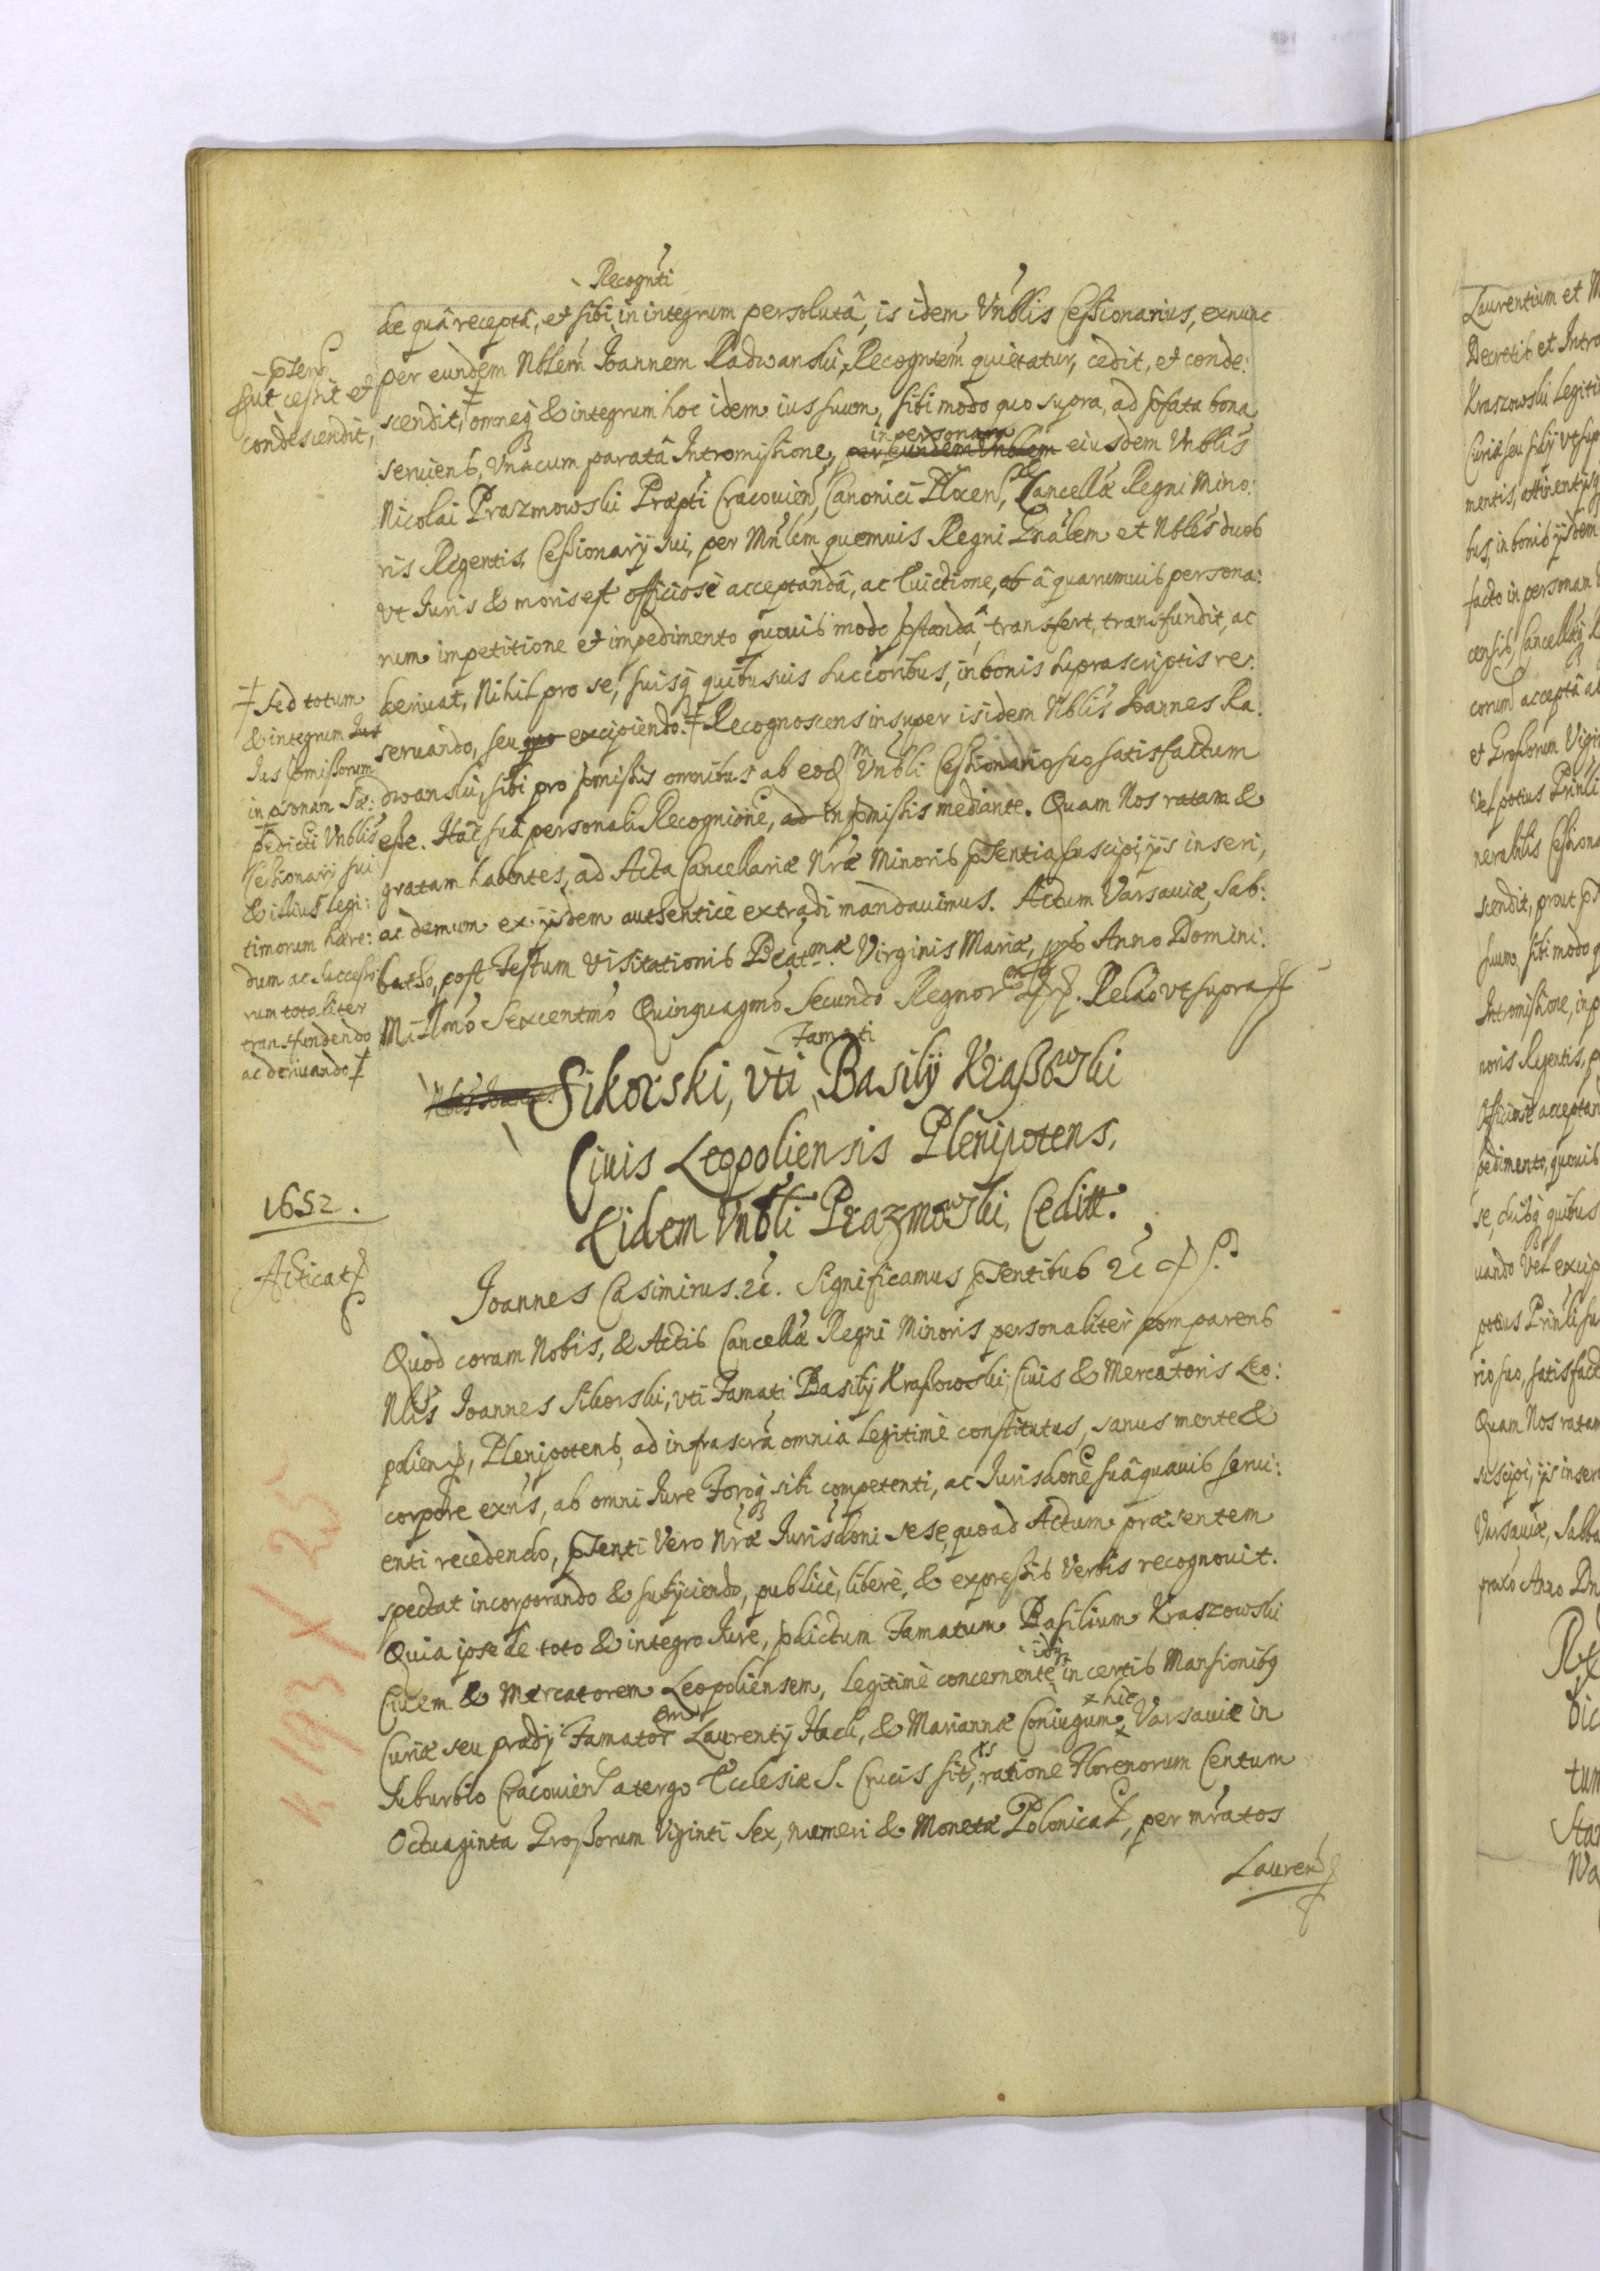 Recognti
de quâ receptâ, et sibi in integrum persolutâ, is idem Vnblis Cessionarius, exnunc
per eundem Nblem Ioannem Radwanski, Recogntem quietatur, cedit, et conde:
scendit, omneq & integrum hoc idem ius suum, sibi modo quo supra, ad pfata bona
seruiens, Vnacum paratâ Intromissione, in personam
per eundem Vnblem eiusdem Vnblis
Nicolai Prazmowski Præpti Cracouien, Canonici Plocen, Cancellæ Regni Mino:
ris Regentis, Cessionarij sui, per Mnlem quemuis Regni Gnalem et Nbles duos
vt Iuris & moris est officiosè acceptandâ, ac Euictione, ab â quarumuis persona:
rum impetitione et impedimento quouis modo pstandâ transfert, transfundit, ac
deriuat, Nihil pro se, suisq quibusuis successoribus, in bonis suprascriptis re:
seruando, seu quo excipiendo. ‡ Recognoscens insuper is idem Nblis Ioannes Ra:
dwanski, sibi pro pmissis omnibus ab eod Vnbli Cessionario suo satisfactum
esse. Hâc suâ personali Recognione, ad in pmissis mediante. Quam Nos ratam &
gratam habentes, ad Acta Cancellariæ Nræ Minoris pntia suscipi, ijs inseri,
ac demum ex ijsdem authenticè extradi mandauimus. Actum Varsauiæ, Sab:
batho, post Festum Visitationis Beatmæ Virginis Mariæ, pxo Anno Domini
Millmo Sexcentmo Quinquagmo Secundo Regnor Relao vt supra
pntem
put cessit et
condescendit,
‡ sed totum
& integrum Iut
Ius pmissorum
in psonam Præ:
pdicti Vnblis
Cessionarij sui
& illius legi:
timorum hære:
dum ac successo
rum totaliter
transfundendo
ac deriuando ‡
Famati
Sikorski, vti Basilij Kraßowski
Ciuis Leopoliensis Plenipotens,
Eidem Vnbli Prazmowski, Cedit.
1652.
Acticat
Ioannes Casimirus. Significamus pntibus
Quod coram Nobis, & Actis Cancellæ Regni Minoris personaliter comparens
Nblis Ioannes Sikorski, vti Famati Basilij Kraßowski, Ciuis & Mercatoris Leo:
polien, Plenipotens, ad infrascra omnia legitimè constitutus, sanus mente &
corpore exns, ab omni Iure Foroq sibi competenti, ac Iurisdone suâ quauis serui:
enti recedendo, pnti Vero Nræ Iurisdoni se se, quoad Actum præsentem
spectat incorporando & subijciendo, publicè, liberè, & expressis Verbis recognouit.
Quia ipse de toto & integro Iure, pdictum Famatum Basilium Kraszowski
Ciuem & Mercatorem Leopoliensem, legitimè concernente in certis Mansionibq
Curiæ seu prædij Famator Laurentij Hacki, & Mariannæ Coniugum hic Varsauiæ in
suburbio Cracouien a tergo Ecclesiæ S. Crucis sitis, ratione Florenorum Centum
Octuaginta Grossorum Viginti Sex, numeri & Monetæ Polonical, per mratos
Lauren
Laurentium et M
Decretis et Intro
Kraszowski legiti
Curiæ seu
mentis, attinentijsq
bus, in bonis ijsdem
facto in personam
censis, Cancellæq
corum acceptâ ab
et Grossorum Vigin
Vel potius Prinli
nerabilis Cessiona
scendit, prout
suum, sibi modo q
Intromissione, in p
noris Regentis, p
Officiosè acceptan
pedimento, quouis
se, suisq quibus
uando Vel excip
potius Prinli su
rio suo, satisfact
Quam Nos ratam
suscipi, ijs inseri
Varsauiæ, Sabba
praxo Anno Dn